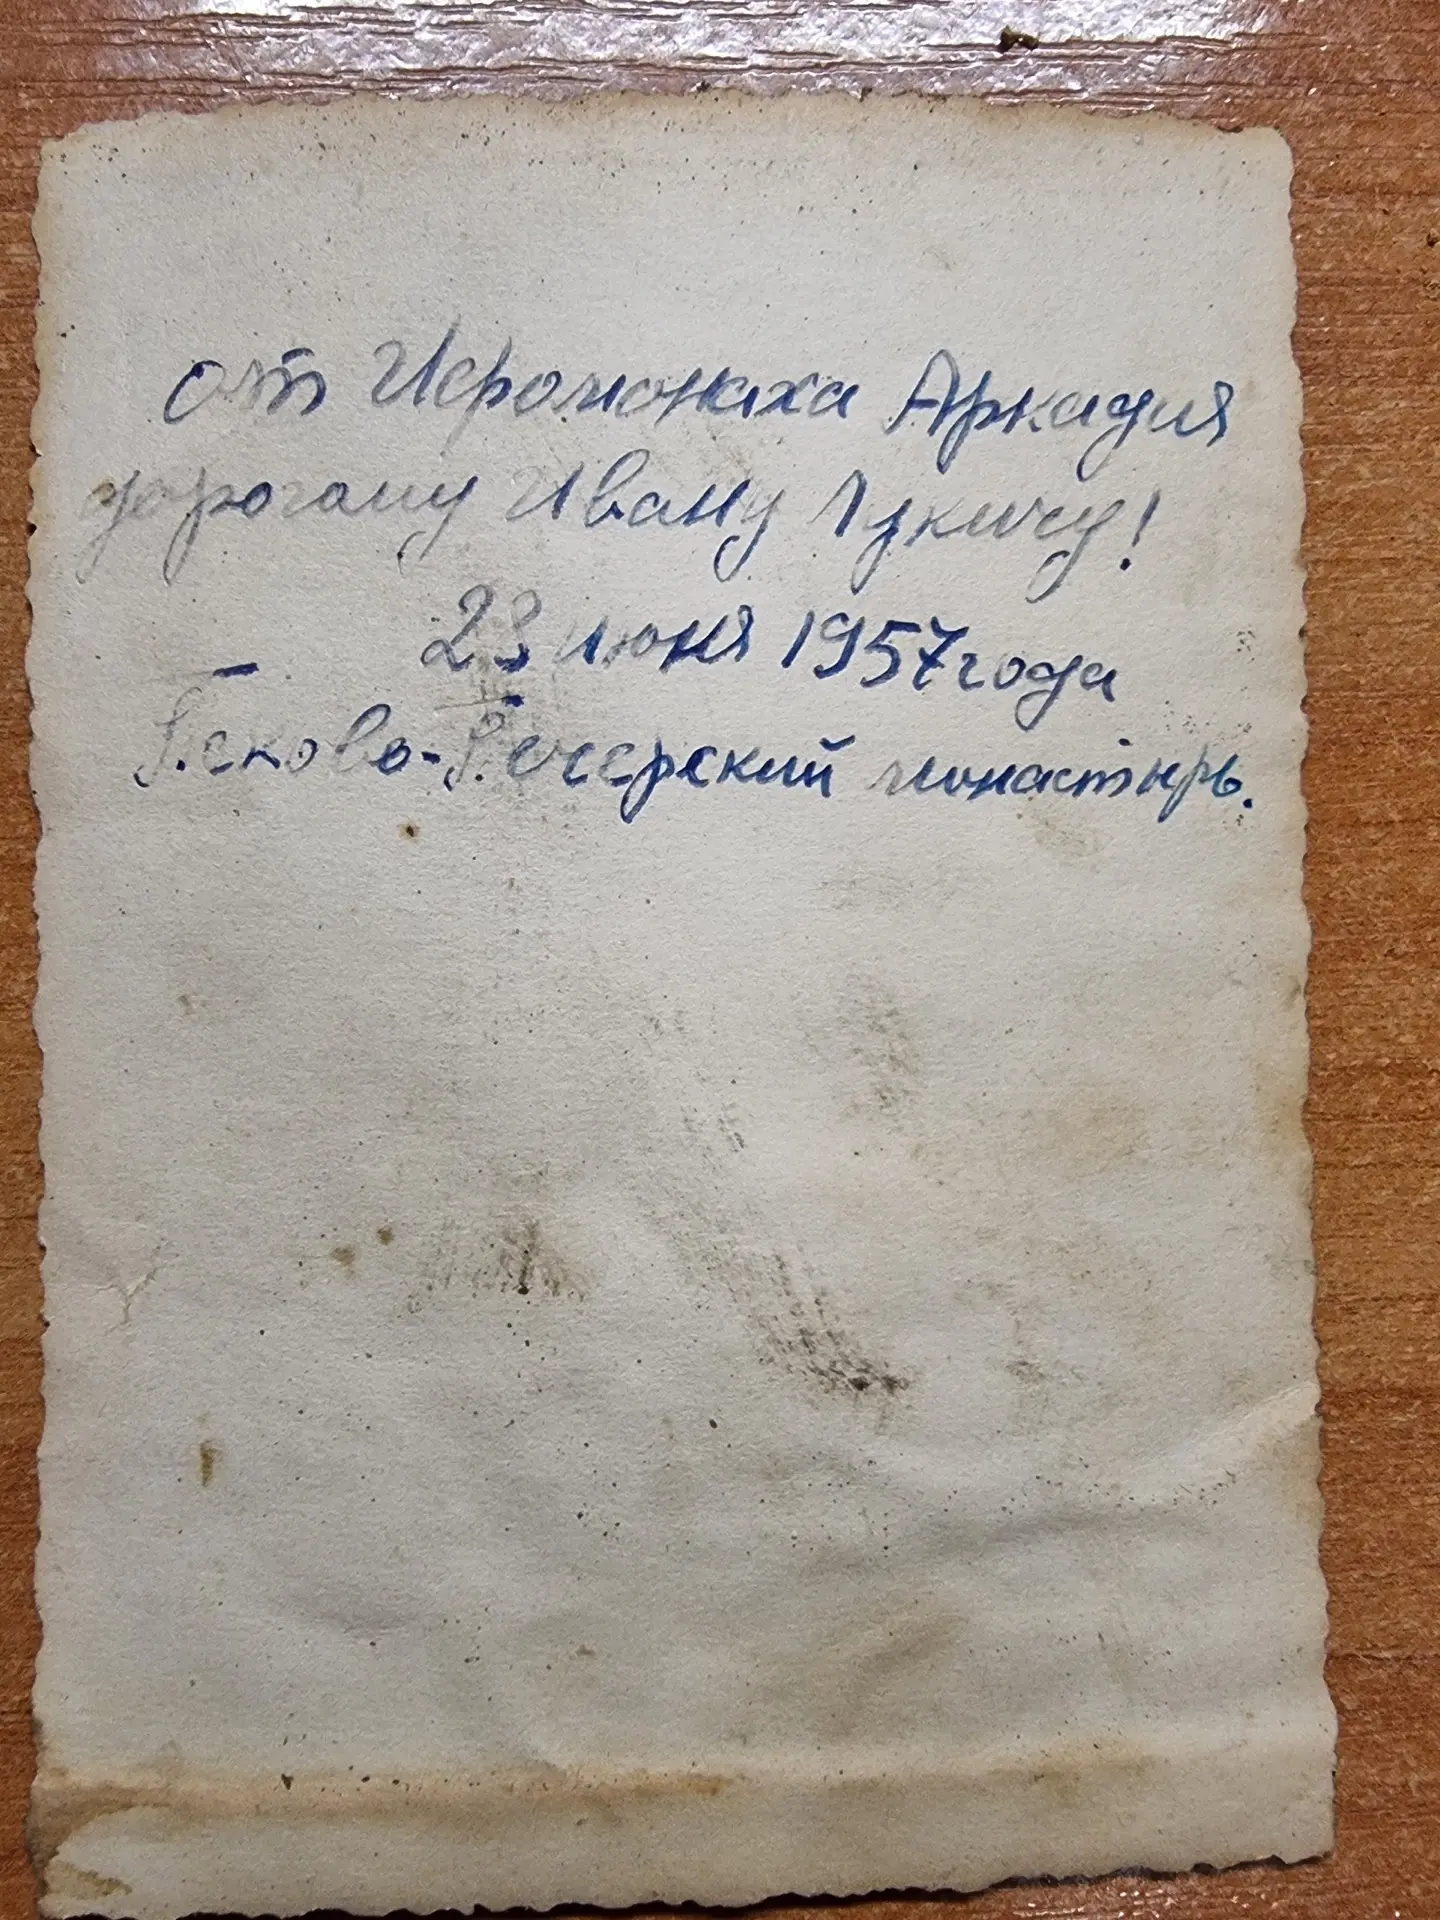 от Иеромонаха Аркадия
дорогому Ивану Лукичу!
23 июня 1957 года
Псково-Печерский монастырь.